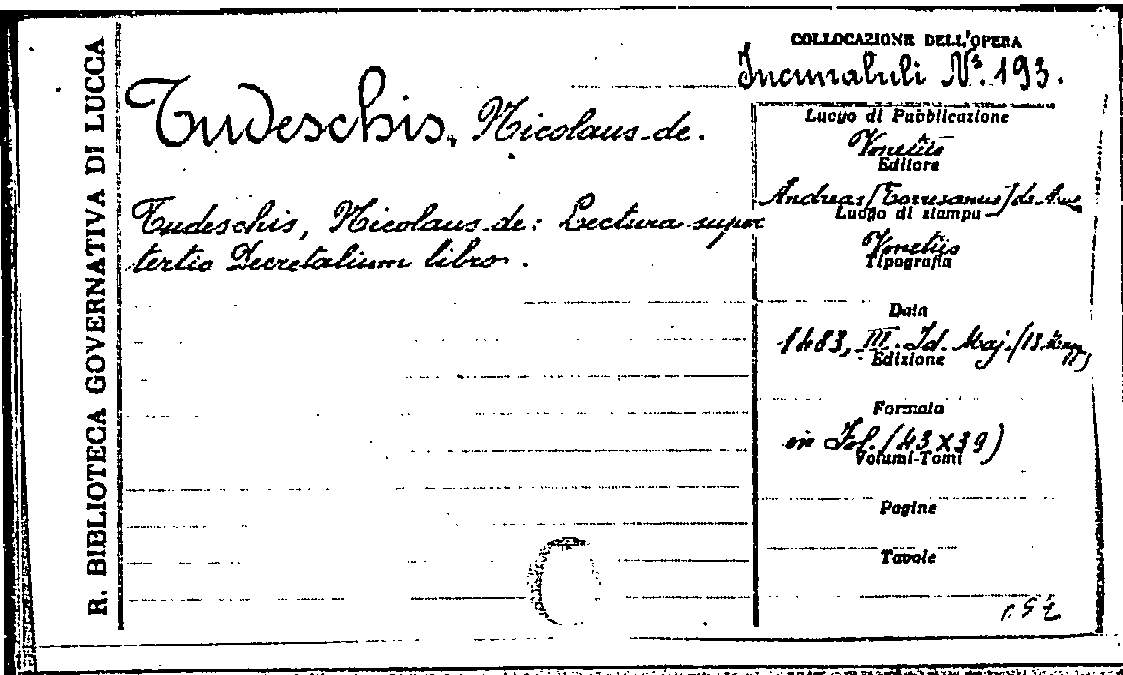 R. BIBLIOTECA GOVERNATIVA DI LUCCA
Tudeschis, Nicolaus de.
Tudeschis, Nicolaus de: Lectura super
tertio Decretalium libro.
COLLOCAZIONE DELL'OPERA
Incunabuli Nº. 193.
Luogo di Pubblicazione
Venetiis
Editore
Andreas [Torresanus] de
Luogo di stampa
Venetiis
Tipografia
Data
1483, III. Id. Maj. (13
Edizione
Formato
in Fol. (43 x 39)
Volumi-Tomi
Pagine
Tavole